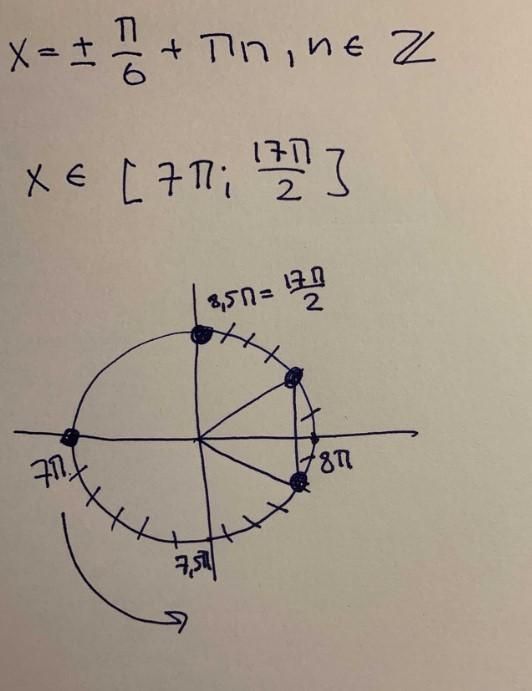 x = ± π/6 + πn, n ∈ ℤ
x ∈ [7π; 17π/2]
8,5π = 17π/2
7π
8π
7,5π